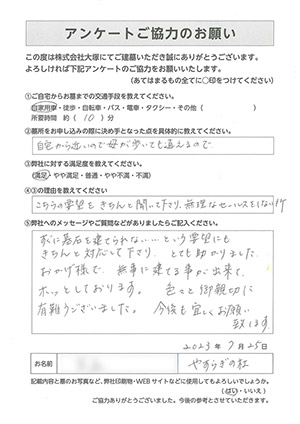 アンケートご協力のお願い
この度は株式会社大塚にてご建墓いただき誠にありがとうございます。
よろしければ下記アンケートのご協力をお願いいたします。
(あてはまるもの全てに○印をつけてください)
①ご自宅からお墓までの交通手段を教えてください
自家用車・徒歩・自転車・バス・電車・タクシー・その他( )
所要時間 約( 10 )分
②墓所をお申し込みの際に決め手となった点を具体的に教えてください
自宅から近いので母が歩いても通えるので
③弊社に対する満足度を教えてください
満足・やや満足・普通・やや不満・不満
④③の理由を教えてください
こちらの要望をきちんと聞いて下さり、無理なセールスをしない
⑤弊社へのメッセージやご質問などがありましたらご記入ください。
すぐに墓石を建てられない……という要望にも
きちんと対応して下さり、とても助かりました。
おかげ様で、無事に建てる事が出来て、
ホッとしております。色々と御親切に
有難うございました。今後も宜しくお願い
致します
2023年7月25日
お名前
やすらぎの杜
記載内容と墓のお写真など、弊社印刷物・WEBサイトなどに使用してもよろしいでしょうか。
(はい・いいえ)
ご協力ありがとうございました。今後の参考とさせていただきます。